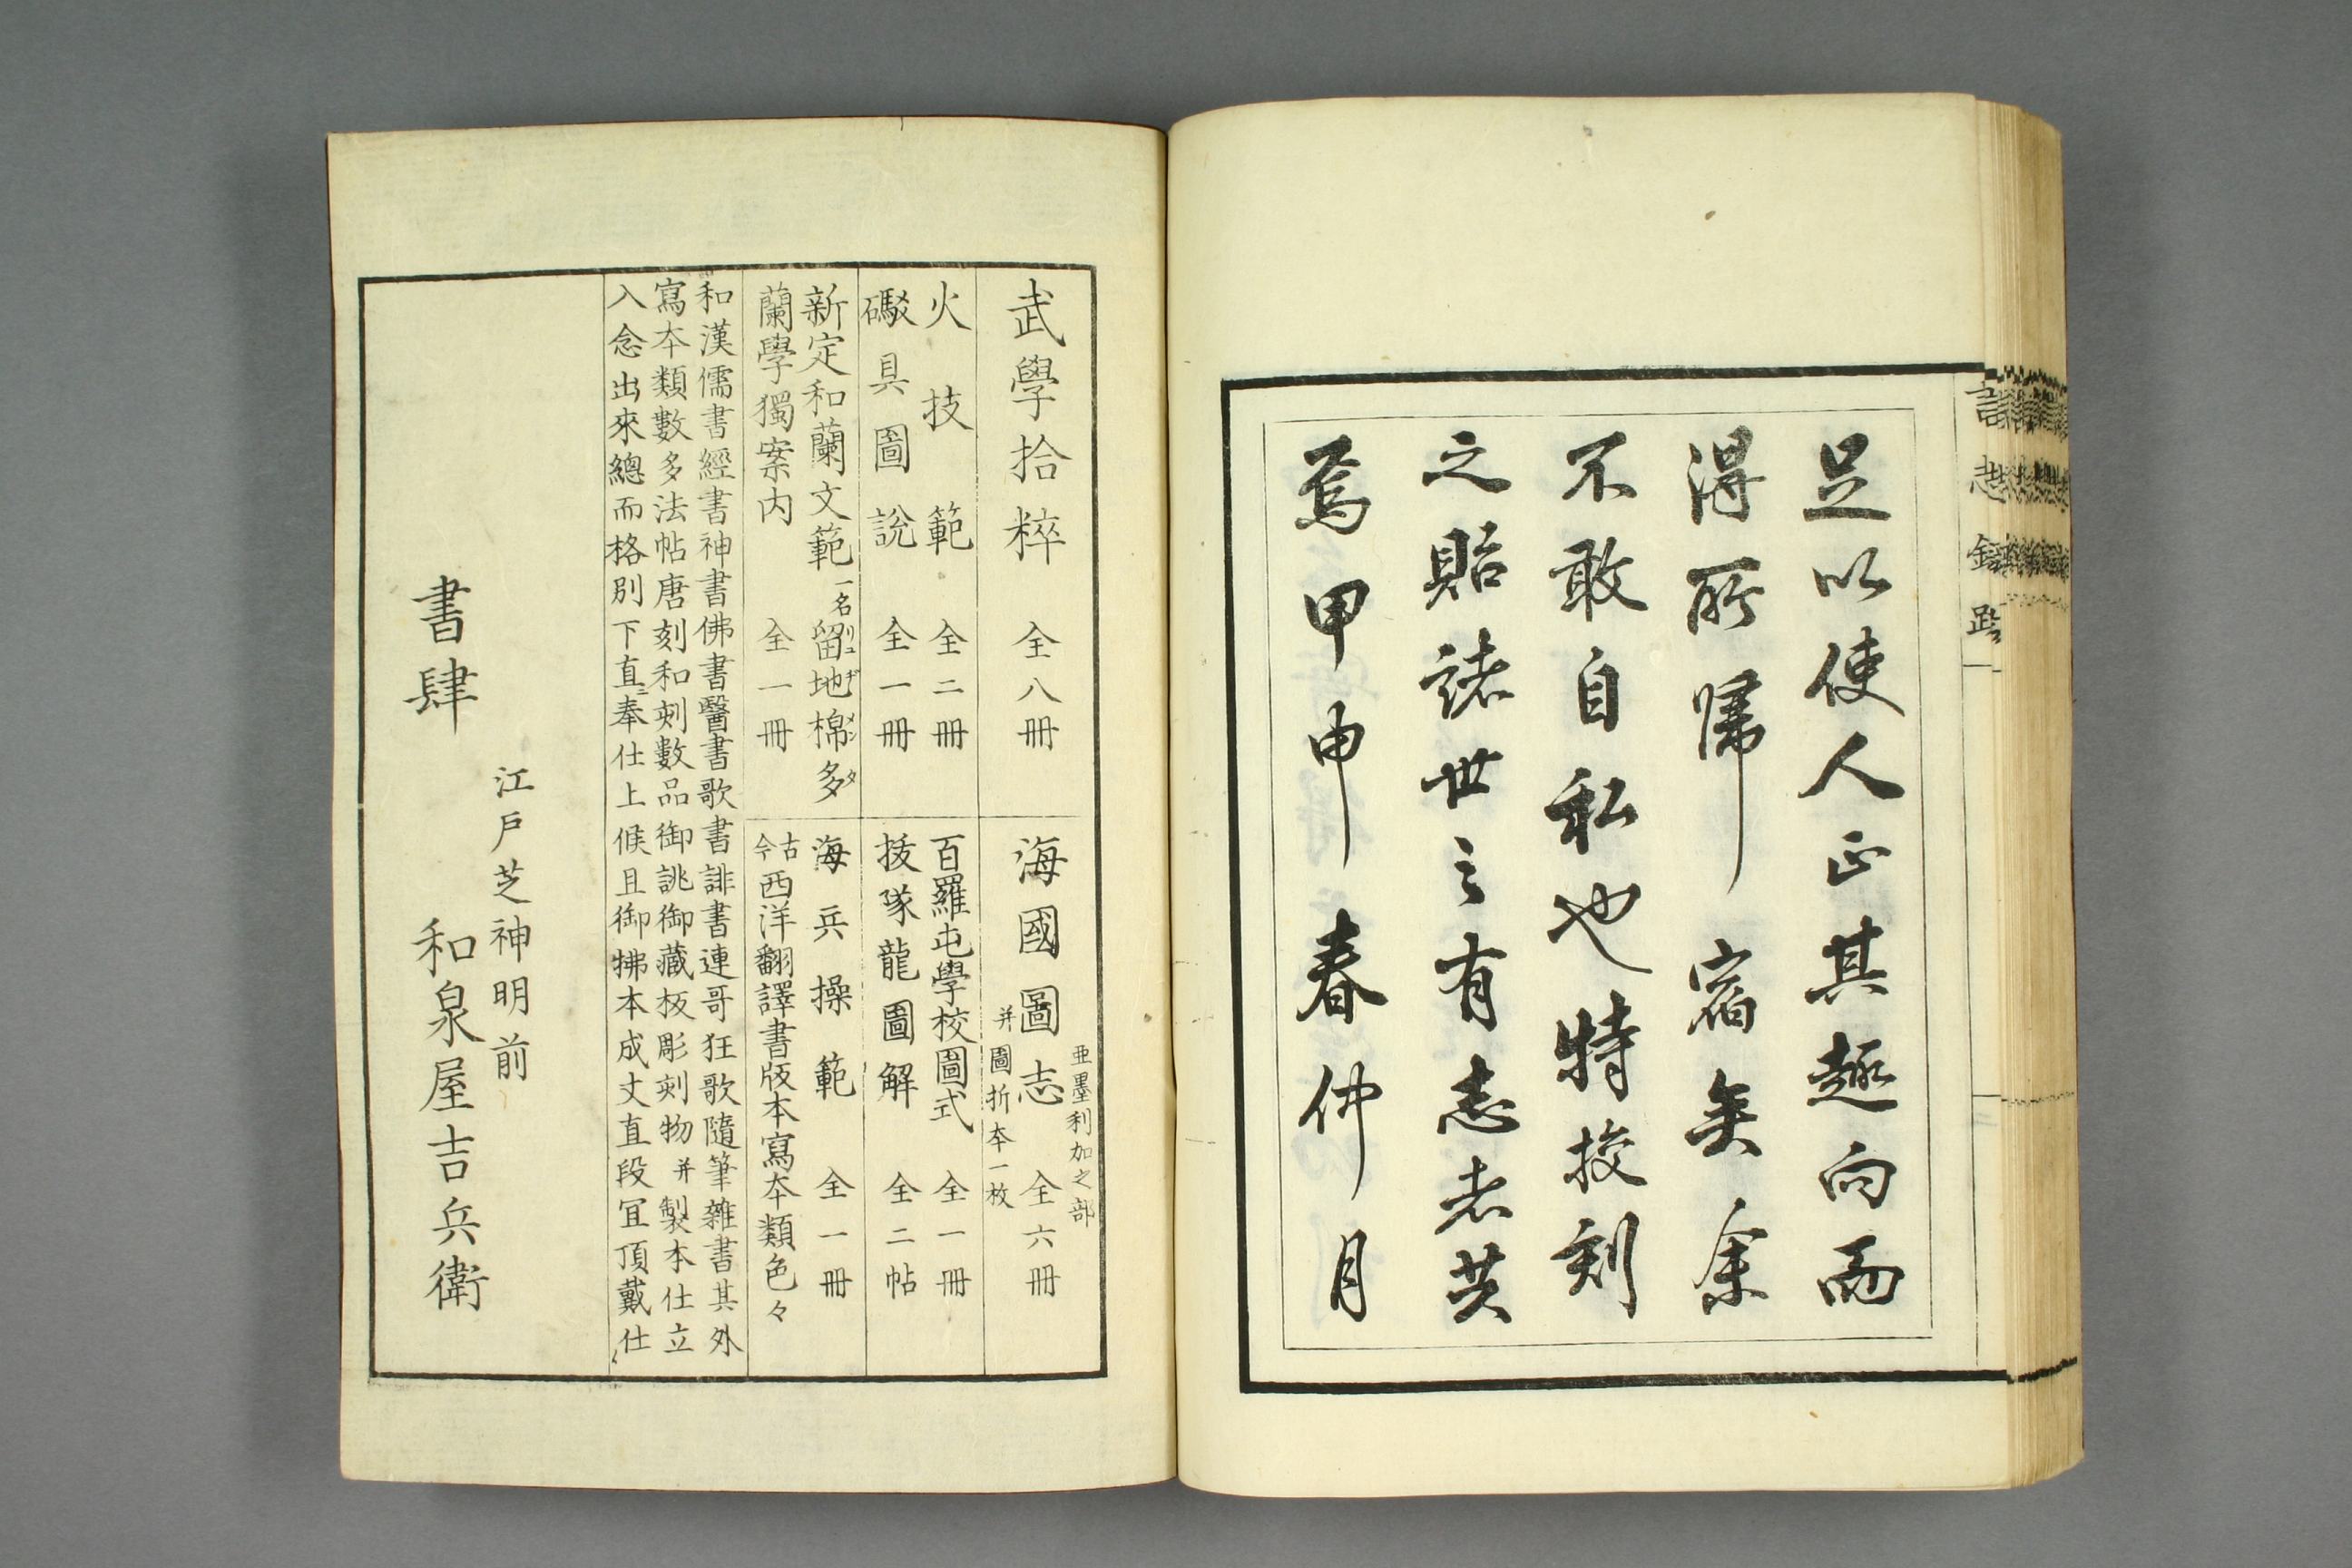 足以使人正其趣向而
得所歸宿矣余
不敢自私也特授刻
之貽諸世之有志者共
焉甲申春仲月
言志錄跋
武學拾粹 全八冊
海國圖志 亜墨利加之部 全六冊
并圖折本一枚
火技範 全二冊
百羅屯學校圖式 全一冊
礮具圖說 全一冊
抜隊龍圖解 全二帖
新定和蘭文範 一名留地棉多 リユ ヂ メン タ
海兵操範 全一冊
蘭學獨案内 全一冊
古今西洋翻譯書版本寫本類色々
和漢儒書經書神書佛書醫書歌書誹書連哥狂歌隨筆雜書其外
寫本類數多法帖唐刻和刻數品御誂御藏板彫刻物并製本仕立
入念出來總而格別下直ニ奉仕上候且御拂本成丈直段冝頂戴仕
江戸芝神明前
書肆 和泉屋吉兵衛